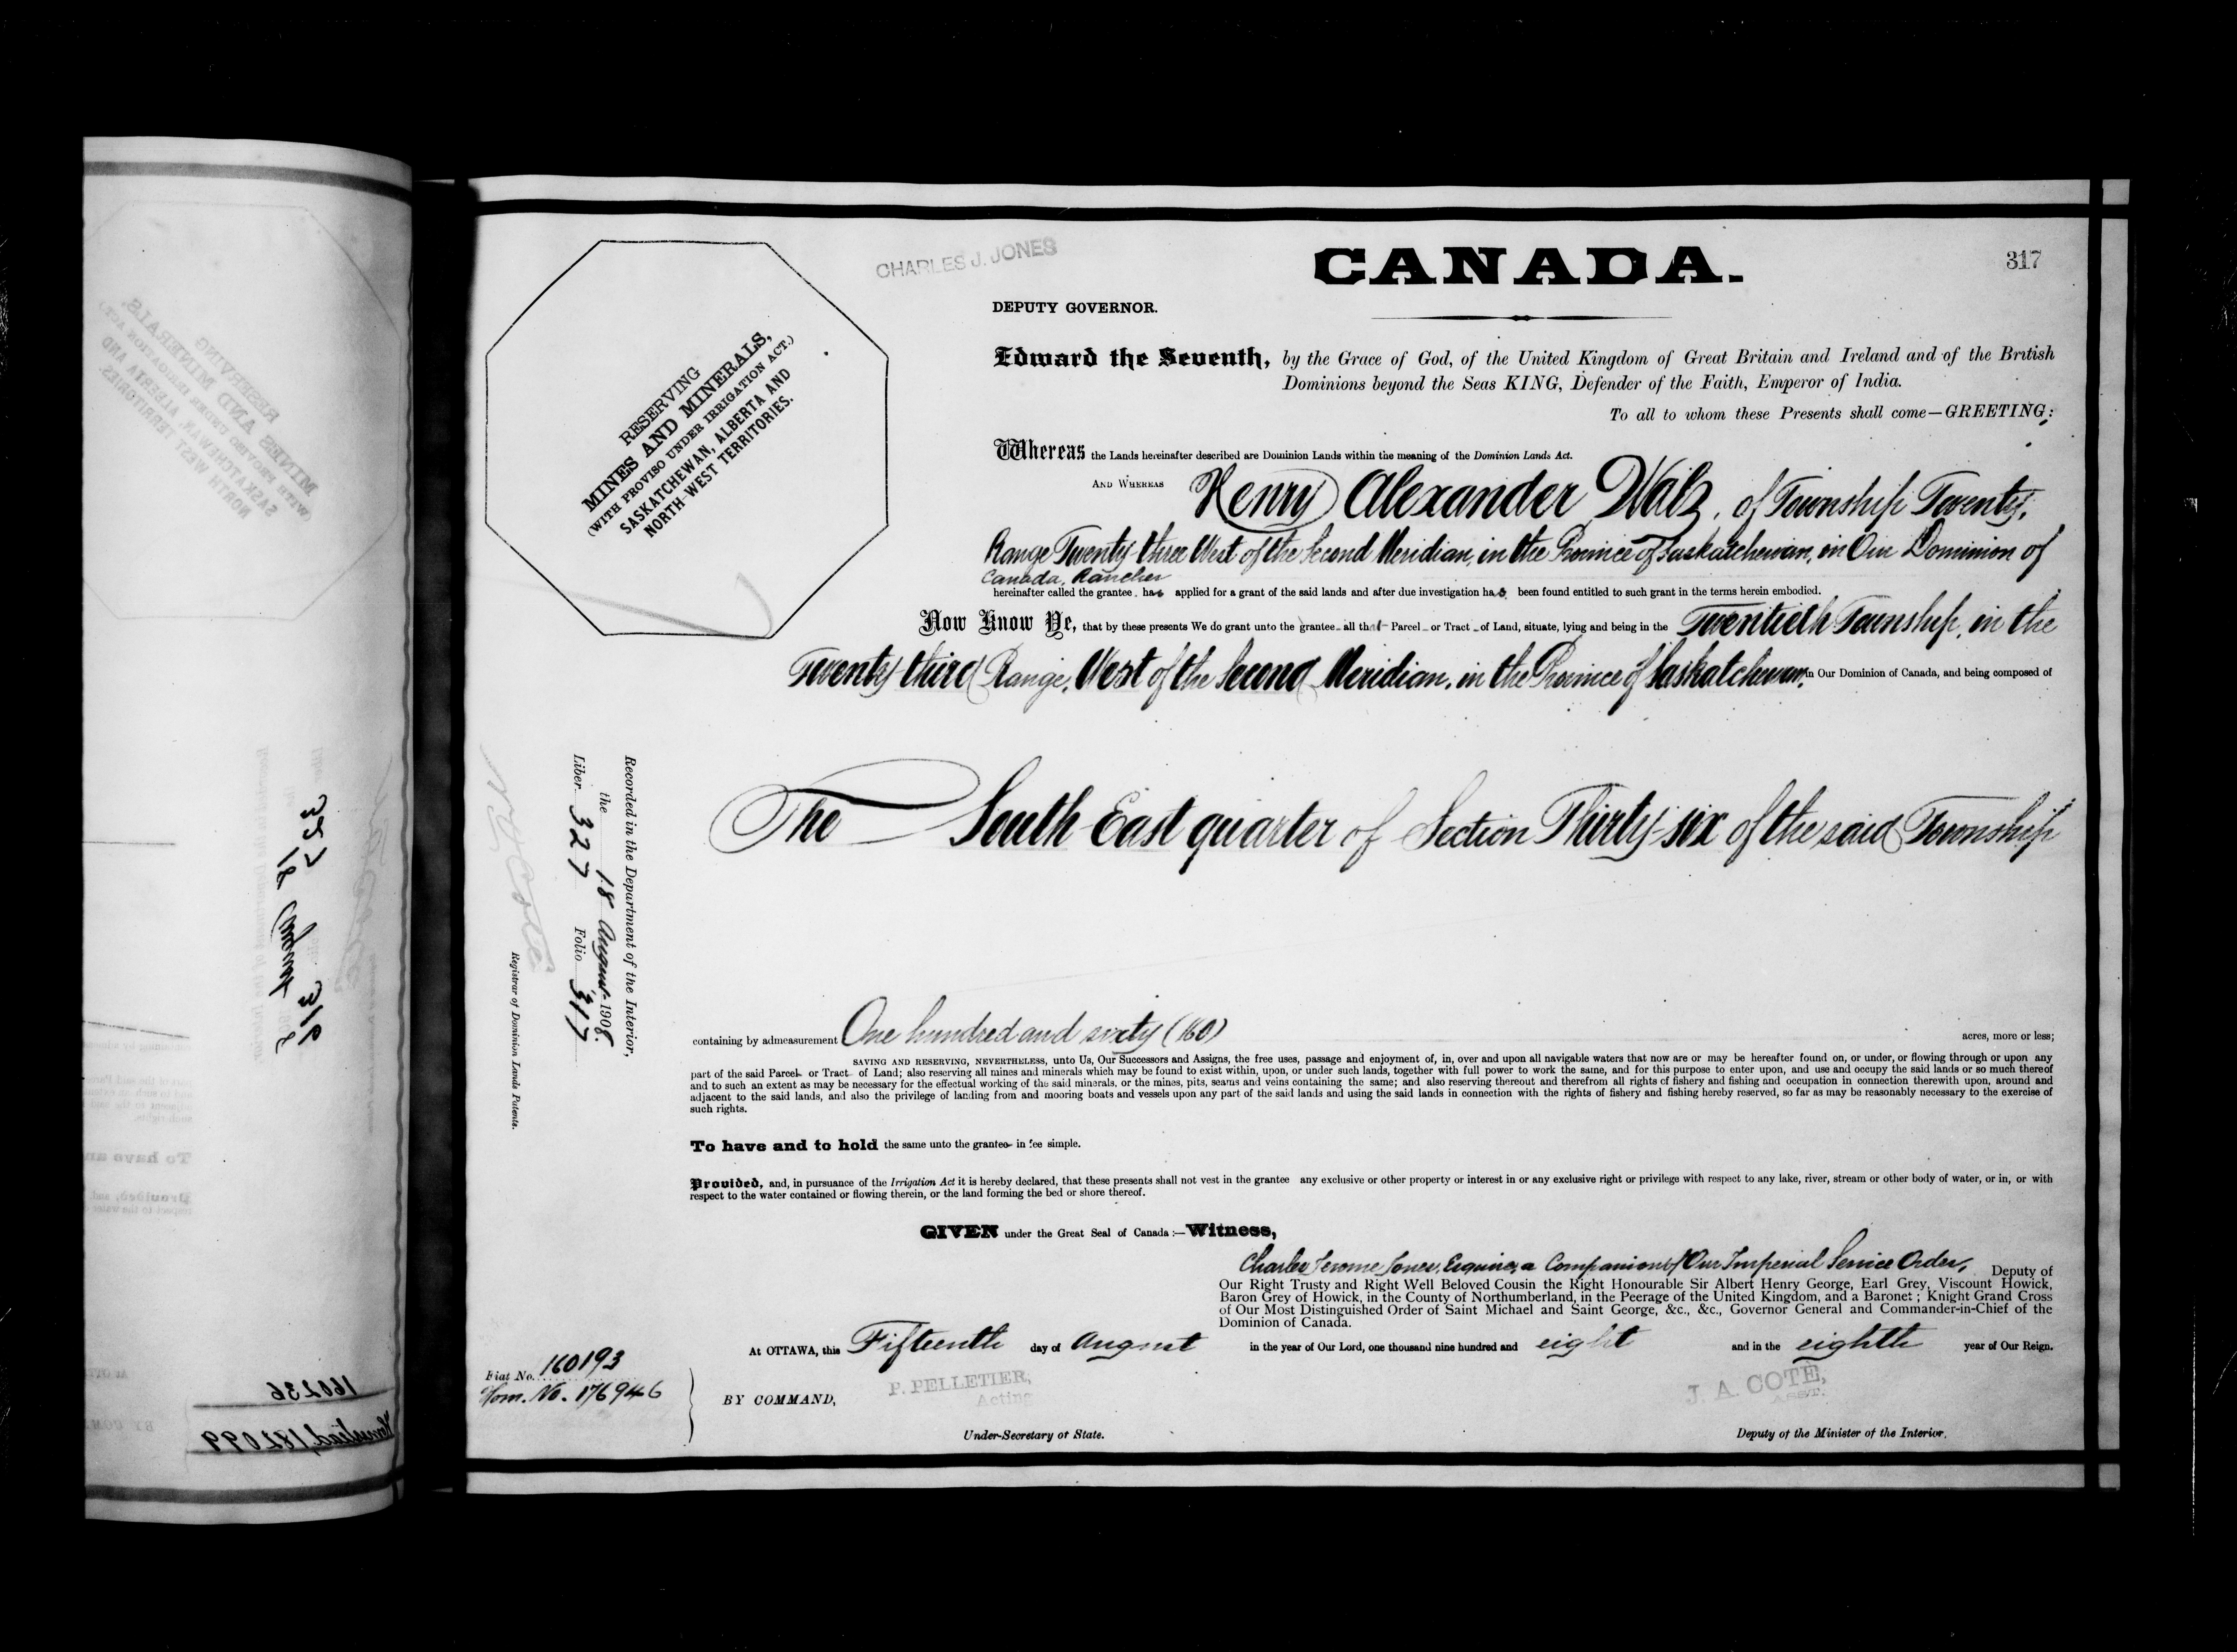 317
CHARLES J. JONES
CANADA.
DEPUTY GOVERNOR.
RESERVING
MINES AND MINERALS,
(WITH PROVISO UNDER IRRIGATION ACT.)
SASKATCHEWAN, ALBERTA AND
NORTH-WEST TERRITORIES.
Edward the Seventh, by the Grace of God, of the United Kingdom of Great Britain and Ireland and of the British
Dominions beyond the Seas KING, Defender of the Faith, Emperor of India.
To all to whom these Presents shall come—GREETING:
Whereas the Lands hereinafter described are Dominion Lands within the meaning of the Dominion Lands Act.
AND WHEREAS Henry Alexander Walz, of Township Twenty,
Range Twenty-three West of the Second Meridian, in the Province of Saskatchewan, in Our Dominion of
Canada, Rancher
hereinafter called the grantee, has applied for a grant of the said lands and after due investigation has been found entitled to such grant in the terms herein embodied.
Now Know Ye, that by these presents We do grant unto the grantee all that Parcel or Tract of Land, situate, lying and being in the Twentieth Township, in the
Twenty-third Range, West of the Second Meridian, in the Province of Saskatchewan, in Our Dominion of Canada, and being composed of
The South East quarter of Section Thirty-six of the said Township
Recorded in the Department of the Interior,
the 18 August 1908.
Liber 327 Folio 317
Registrar of Dominion Lands Patents.
containing by admeasurement One hundred and sixty (160) acres, more or less;
SAVING AND RESERVING, NEVERTHELESS, unto Us, Our Successors and Assigns, the free uses, passage and enjoyment of, in, over and upon all navigable waters that now are or may be hereafter found on, or under, or flowing through or upon any
part of the said Parcel or Tract of Land; also reserving all mines and minerals which may be found to exist within, upon, or under such lands, together with full power to work the same, and for this purpose to enter upon, and use and occupy the said lands or so much thereof
and to such an extent as may be necessary for the effectual working of the said minerals, or the mines, pits, seams and veins containing the same; and also reserving thereout and therefrom all rights of fishery and fishing and occupation in connection therewith upon, around and
adjacent to the said lands, and also the privilege of landing from and mooring boats and vessels upon any part of the said lands and using the said lands in connection with the rights of fishery and fishing hereby reserved, so far as may be reasonably necessary to the exercise of
such rights.
To have and to hold the same unto the grantee in fee simple.
Provided, and, in pursuance of the Irrigation Act it is hereby declared, that these presents shall not vest in the grantee any exclusive or other property or interest in or any exclusive right or privilege with respect to any lake, river, stream or other body of water, or in, or with
respect to the water contained or flowing therein, or the land forming the bed or shore thereof.
GIVEN under the Great Seal of Canada :—Witness,
Charles Jerome Jones, Esquire, a Companion of Our Imperial Service Order, Deputy of
Our Right Trusty and Right Well Beloved Cousin the Right Honourable Sir Albert Henry George, Earl Grey, Viscount Howick,
Baron Grey of Howick, in the County of Northumberland, in the Peerage of the United Kingdom, and a Baronet ; Knight Grand Cross
of Our Most Distinguished Order of Saint Michael and Saint George, &c., &c., Governor General and Commander-in-Chief of the
Dominion of Canada.
At OTTAWA, this Fifteenth day of August in the year of Our Lord, one thousand nine hundred and eight and in the eighth year of Our Reign.
Fiat No. 160193
Hom. No. 176946
BY COMMAND,
P. PELLETIER,
Acting
J. A. COTE,
ASST.
Under-Secretary of State.
Deputy of the Minister of the Interior.